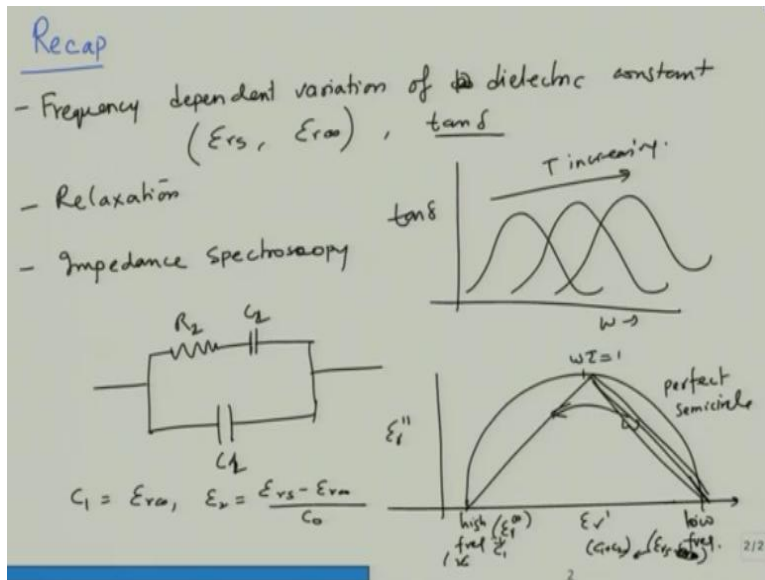 Recap
- Frequency dependent variation of dielectric constant
(εrs, εr∞), tanδ
- Relaxation
- Impedance Spectroscopy
T increasing.
tanδ
ω→
R2 C2
C1
C1 = εr∞, ε2 = εrs - εr∞ / C0
ωτ=1
perfect
semicircle
εr''
ω
high (εr∞) εr' low
freq (C1+C2) (εrs) freq.
2/2
2